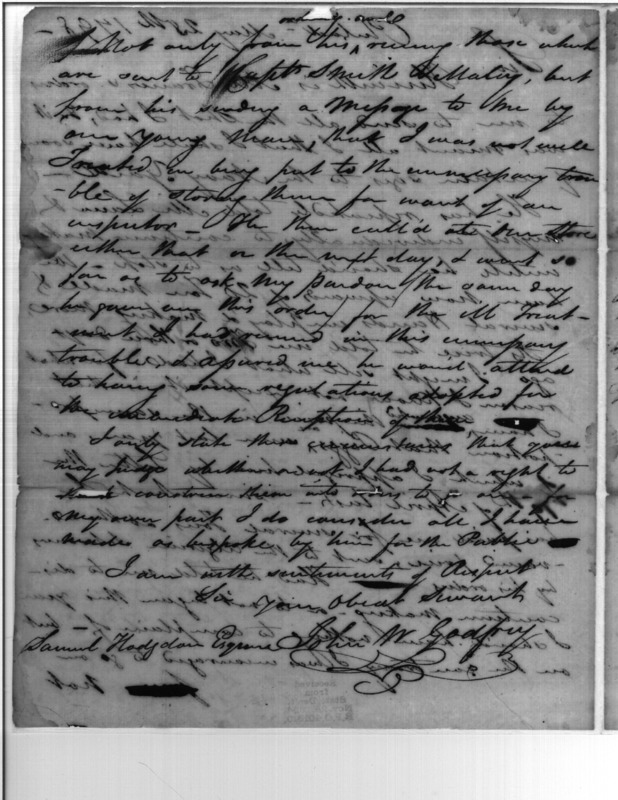 Not only from his receiving those which
are sent to Captn Smith & Maley, but
from his sending a Message to me by
our young Man, that I was not well
Treated in being put to the unnecessary trou
-ble of storing them for want of an
inspector - He then call'd at our Store
either that or the next day, & went so
far as to ask my pardon the same day
he gave me this order, for the ill treat-
-ment I had received in this unnecessary
trouble & assured me he would attend
to having some regulations adopted for
the immediate Reception of them
I only state these circumstances that you
may judge whether or not I had not a right to
construe them into orders to go on - for
my own part I do consider all I have
made as bespoke by him for the Public
I am with sentiments of Respect
Sir your Obedt Servant
Samuel Hodgdon Esquire John W. Godfrey